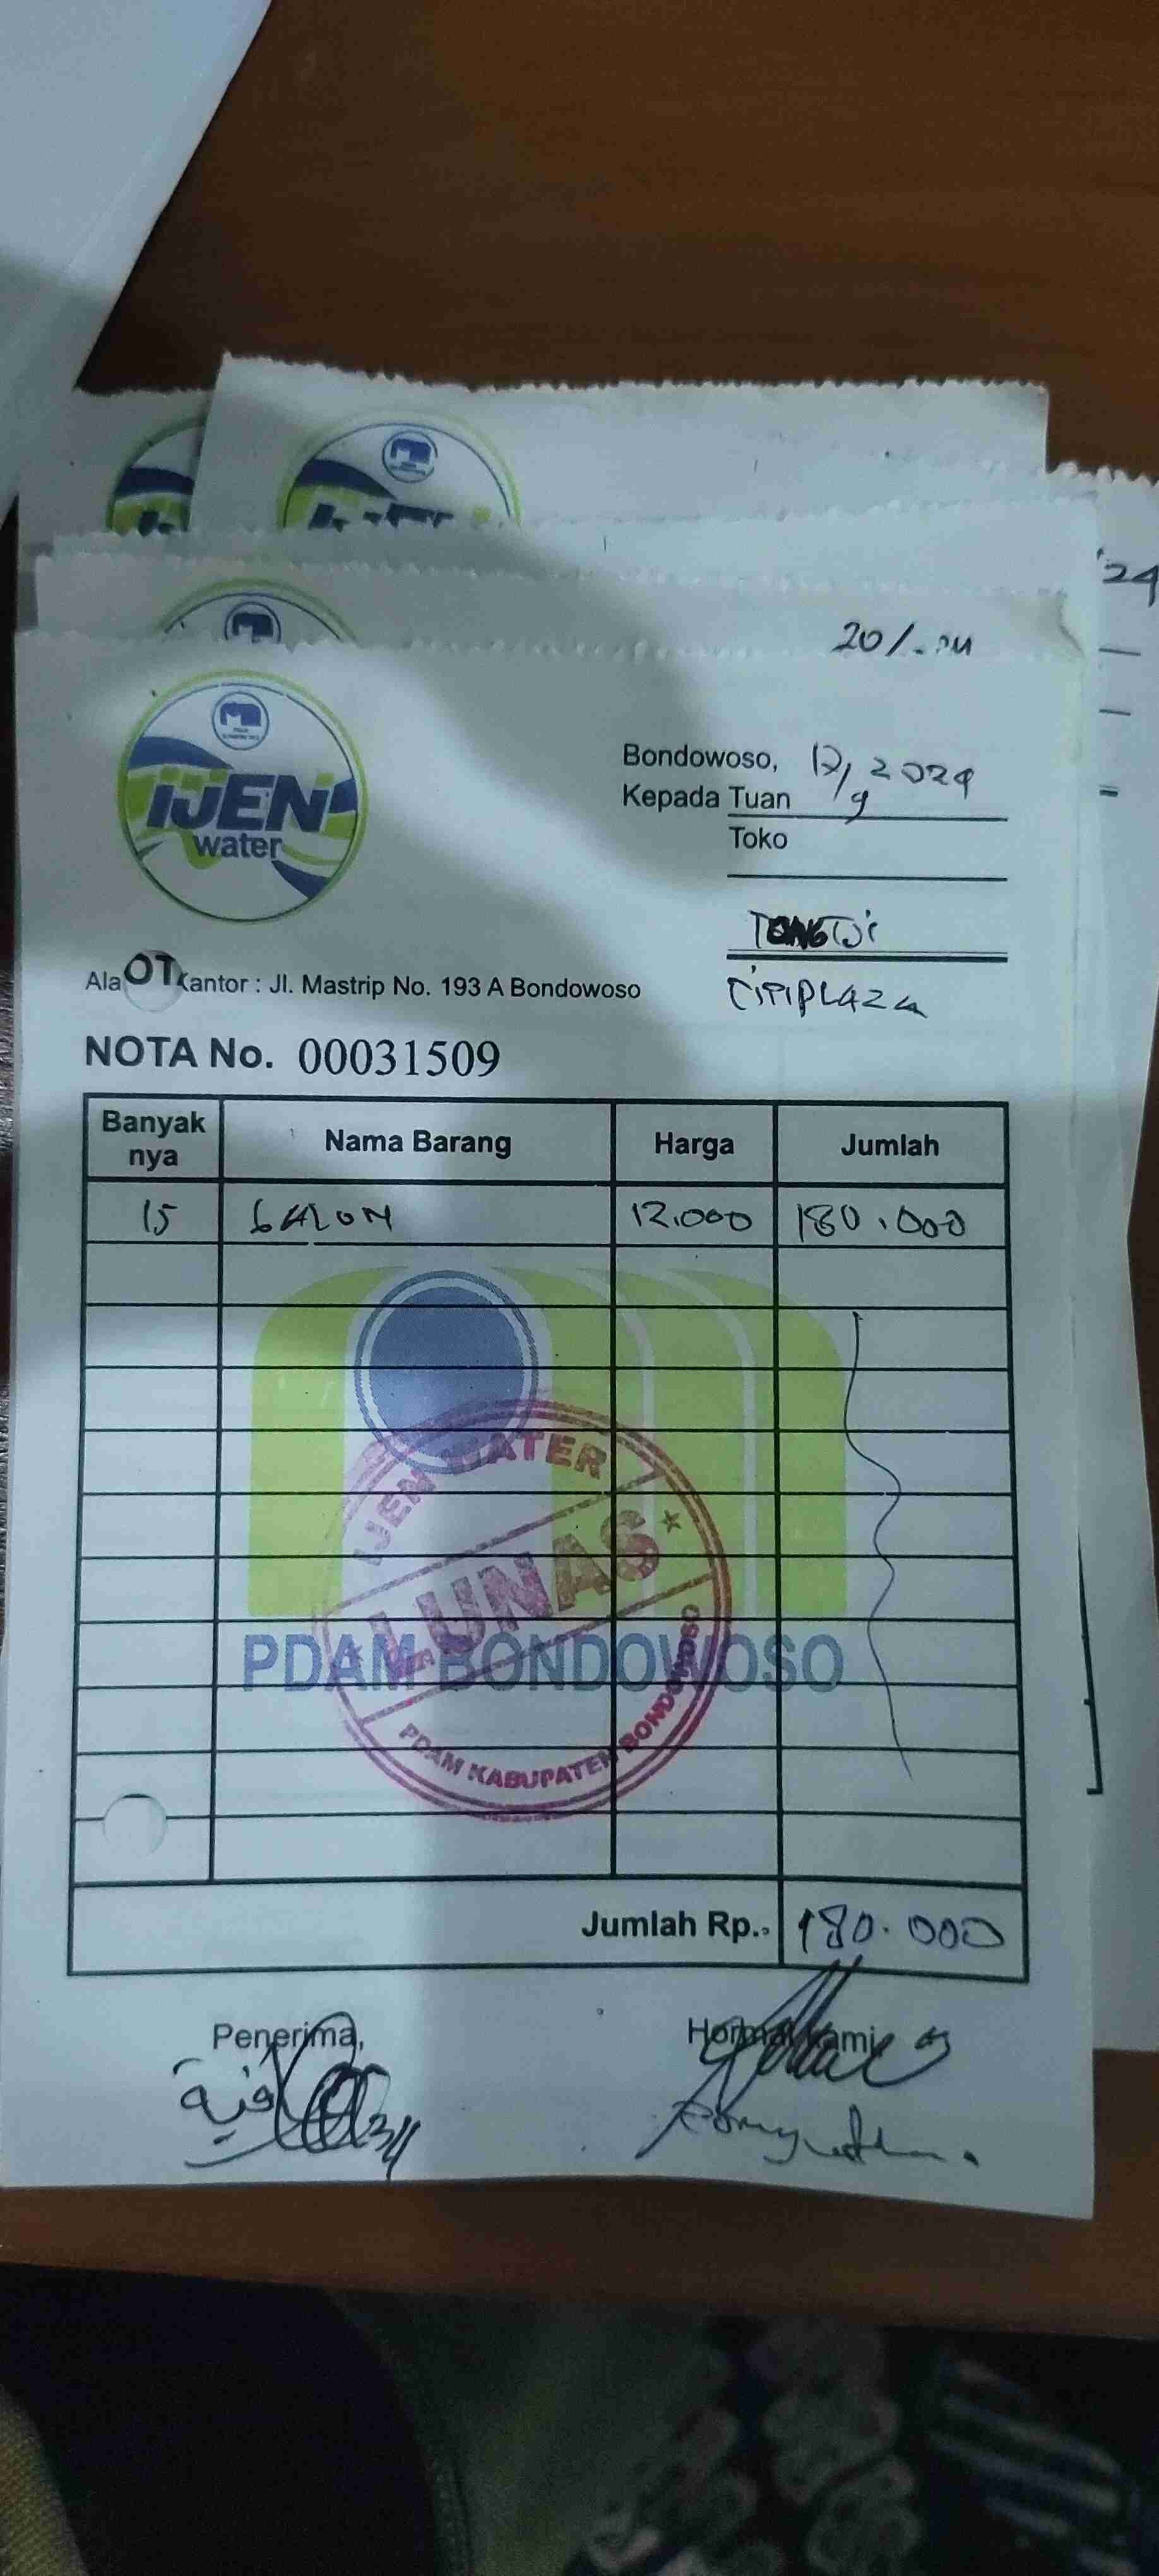 '24
20/
IJEN
water
Bondowoso, 12/9 2024
Kepada Tuan
Toko
TONGTJi
CiTiPLAZA
Ala OT Kantor : Jl. Mastrip No. 193 A Bondowoso
NOTA No. 00031509
Banyak nya Nama Barang Harga Jumlah
15 GALON 12.000 180.000
IJEN WATER
LUNAS
PDAM BONDOWOSO
PDAM KABUPATEN BONDOWOSO
Jumlah Rp. 180.000
Penerima, Hormat kami